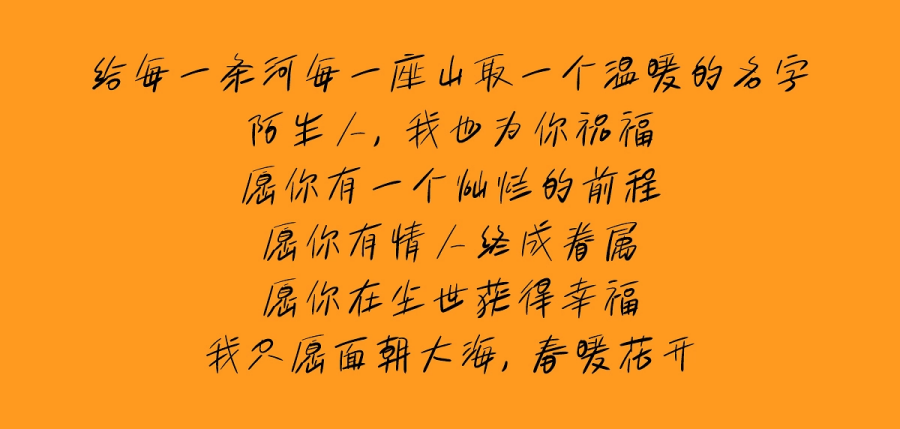 给每一条河每一座山取一个温暖的名字
陌生人，我也为你祝福
愿你有一个灿烂的前程
愿你有情人终成眷属
愿你在尘世获得幸福
我只愿面朝大海，春暖花开